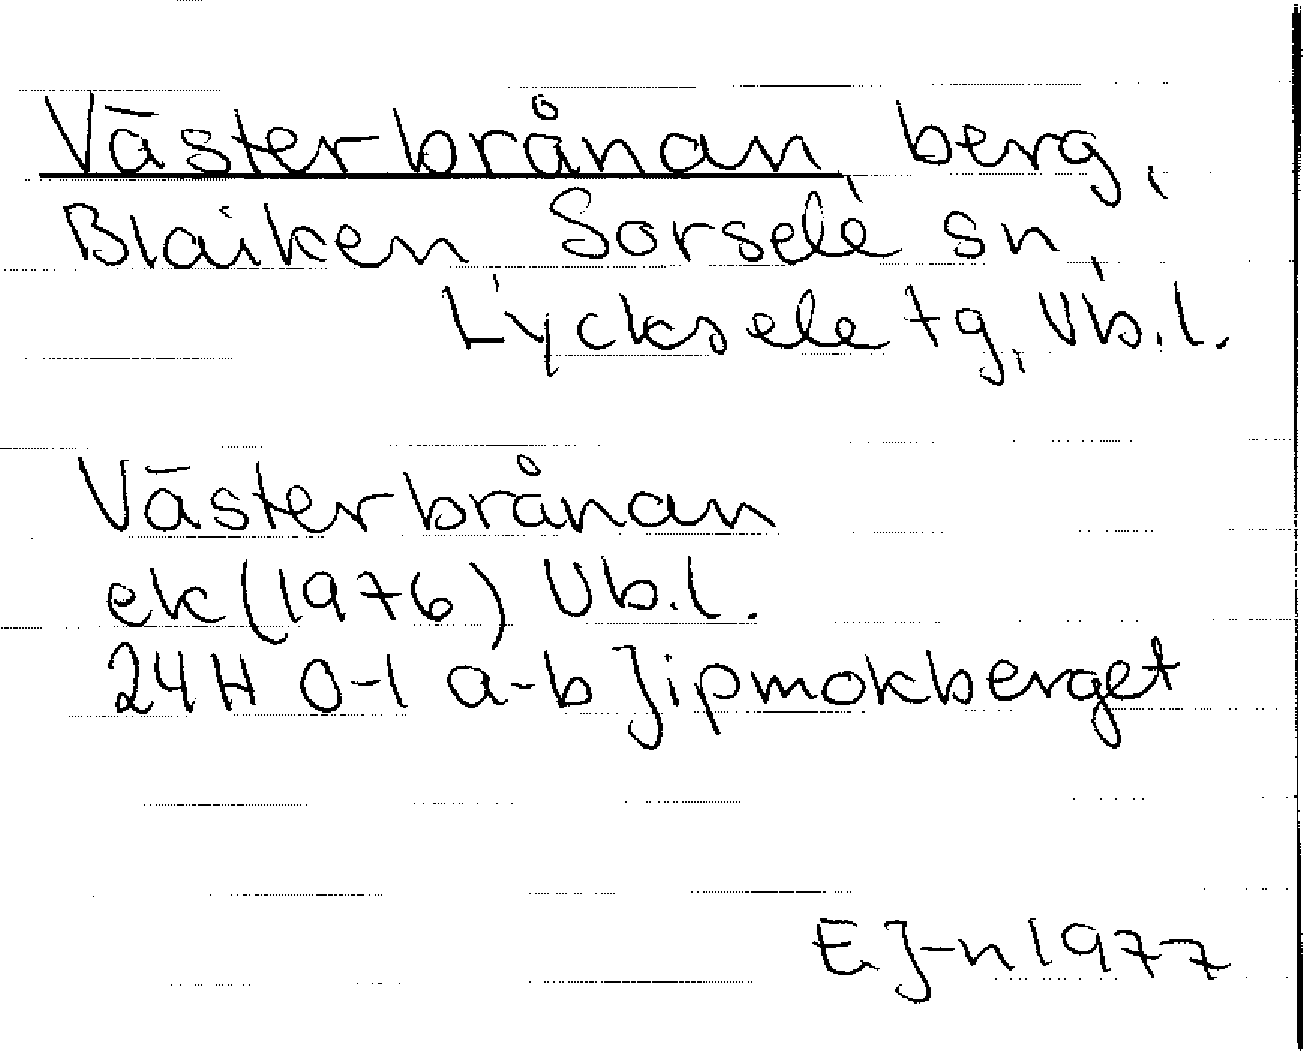 Västerbrånan, berg,
Blaiken Sorsele sn,
Lycksele tg, Vb.l.
Västerbrånan
ek(1976) Vb.l.
24H 0-1 a-b Jipmokberget
E J-n 1977